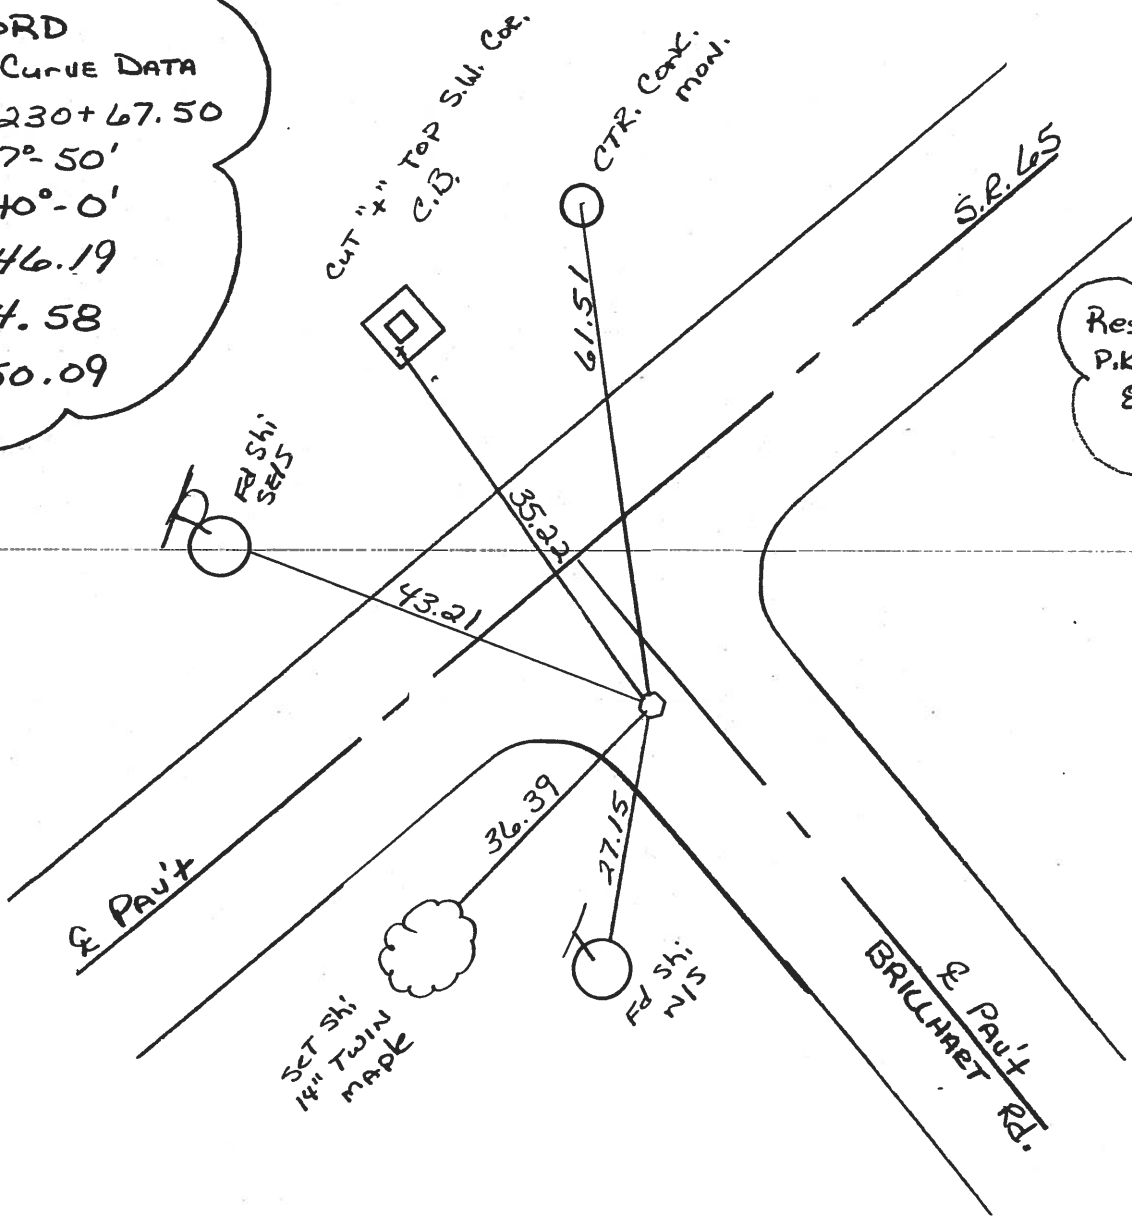 ORD
Curve DATA
230+67.50
7°-50'
40°-0'
46.19
4.58
50.09
CUT "x" TOP S.W. Cor.
C.B.
CTR. Conc.
mon.
S.R. 65
Res
P.K
61.51
Fd Shi
SE/S
35.22
43.21
36.39
27.15
℄ PAV't
SET Shi
14" TWIN
MAPLE
Fd Shi
N/S
℄ PAV't
BRILLHART Rd.